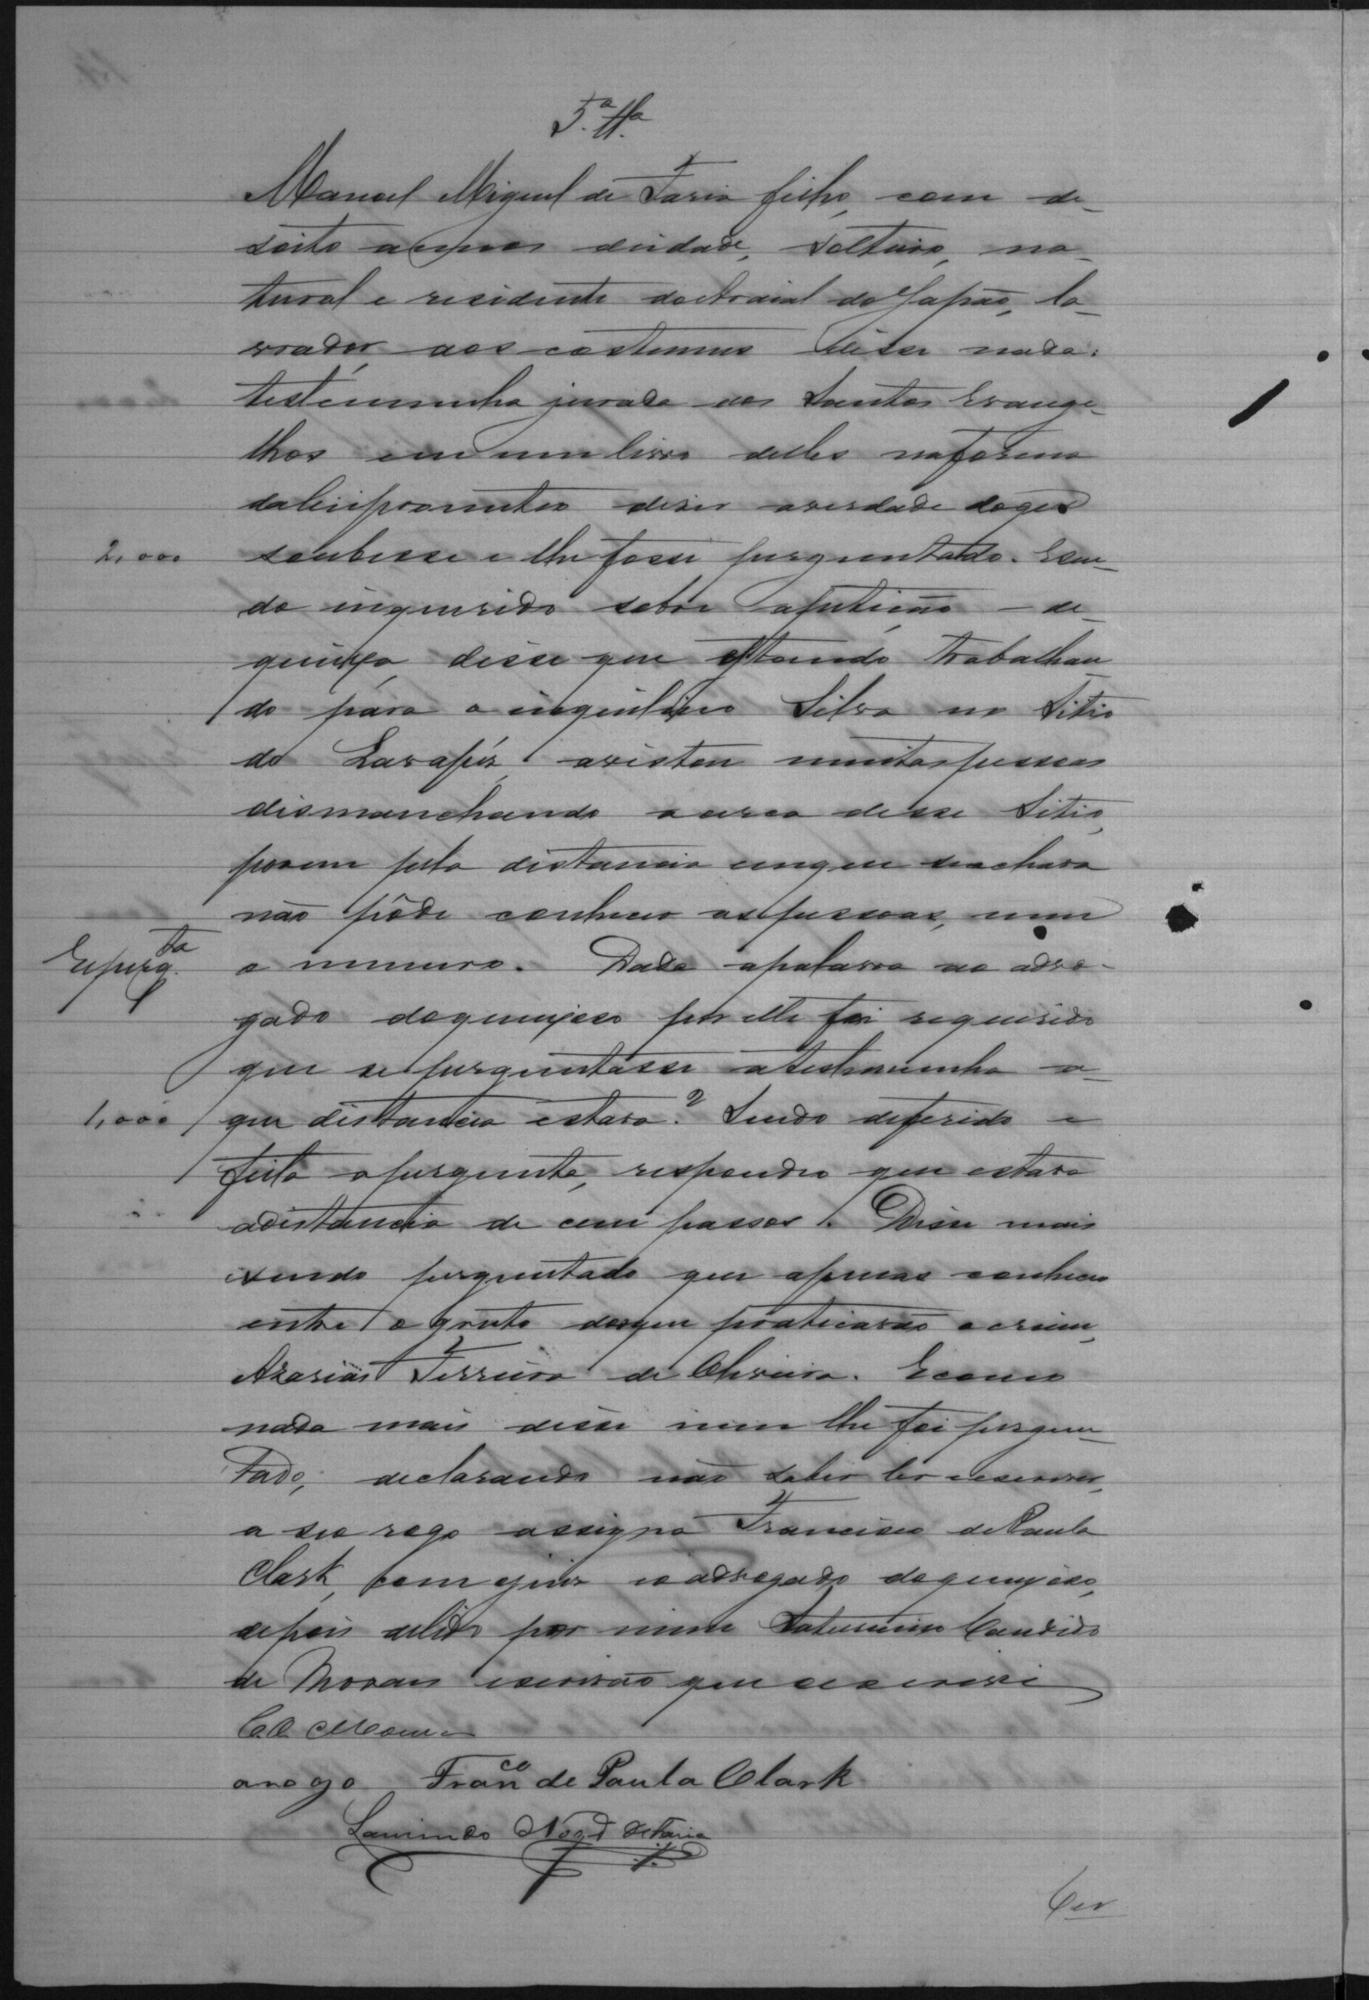 5.ª Tª
Manoel Miguel de Faria filho, com de-
soito annos deidade, solteiro, na-
tural e residente do Arraial do Japão, la-
vrador, aos costumes disse nada.
testemunha jurada aos Santos Evange-
lhos em um livro delles na forma
dalei prometteo diser averdade doque
2,000 soubesse e lhe fosse perguntado. Esen-
do inquerido sobre apetição de
queixa, disse que estando trabalhan
do para o inquilino Silva no Sitio
do Lavapés, avistou muitas pessoas
dismanchando a cerca desse Sitio,
porem pela distancia emque se achava
não pôde conhecer as pessoas, nem
Epergta o numero. Dada apalavra ao advo-
gado doqueixoso por elle foi requerido
que se perguntasse atestemunha a-
1,000 que distancia estava? Sendo deferido e
feita apergunta, respondeo que estava
adistancia de cem passos. Disse mais
sendo perguntado que apenas conheceo
entre o grupo dosque praticarão o crime,
Azarias Ferreira de Oliveira. Ecomo
nada mais disse nem lhe foi pergun-
tado, declarando não saber ler e escrever,
a seo rogo assigna Francisco de Paula
Clark, com ojuiz eo advogado doqueixoso,
depois delido por mim Saturnino Candido
de Moraes escrivão que escrevi
arogo Franco de Paula Clark